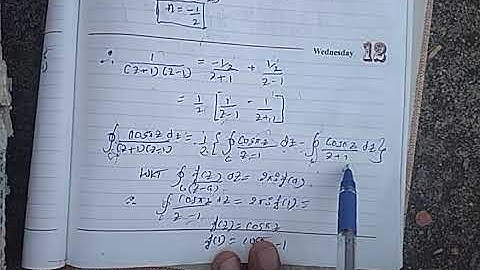 A = -1/2
Wednesday 12
∴ 1/((z+1)(z-1)) = -1/2/(z+1) + 1/2/(z-1)
= 1/2 [1/(z-1) - 1/(z+1)]
∮c cosπz dz/((z+1)(z-1)) = 1/2 {∮c cosπz/(z-1) dz - ∮c cosπz/(z+1) dz}
WKT ∮c f(z)/(z-a) dz = 2πi f(a)
∴ ∮c cosπz dz/(z-1) = 2πi f(1) =
f(z) = cosπz
f(1) = cosπ = -1